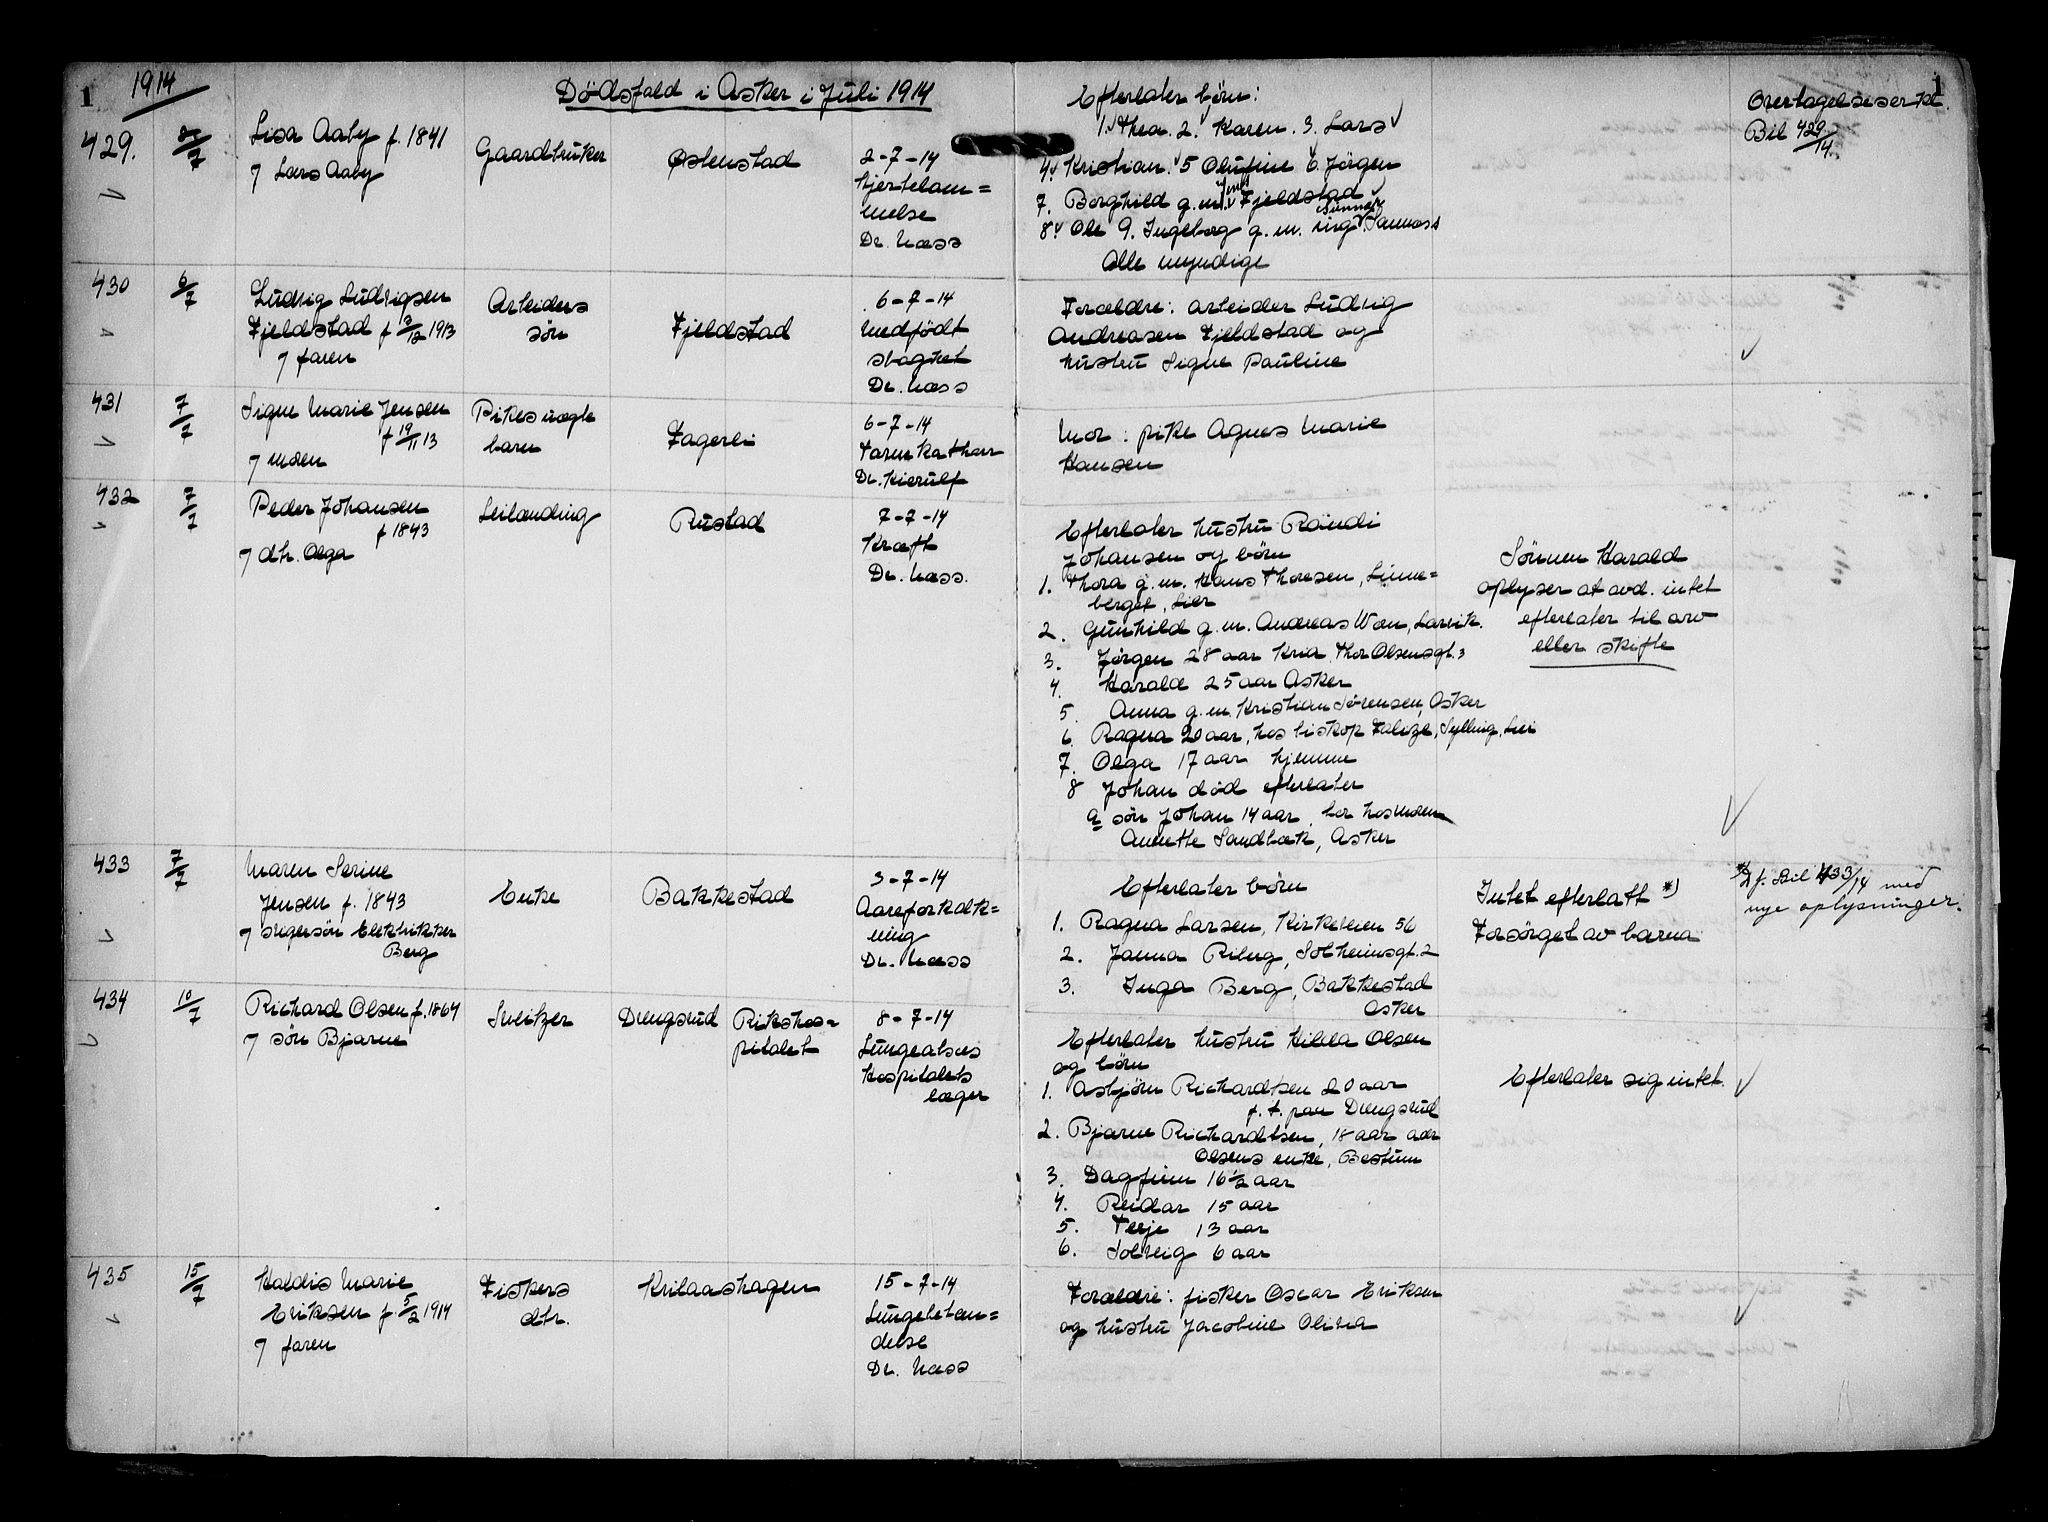 1
1914
Dödsfald i Asker i Juli 1914
429.
7
Lisa Aaby f. 1841
7 Lars Aaby
Gaardbruker
Østenstad
2-7-14
hjertelam=
melse
Dr. Næss
Efterlater börn:
1. Thea. 2. Karen. 3. Lars
4. Kristian. 5 Olufine 6. Jörgen
7. Borghild g.m. Fjeldstad
8. Ole 9. Ingeborg g.m. ing. Sannæss
Alle myndige
1
Overtagelseserkl.
Bil 429/14.
430
6/7
Ludvig Ludvigsen
Fjeldstad f 3/12 1913
7 faren
Arbeiders
sön
Fjeldstad
6-7-14
Medfödt
svaghet
Dr. Næss
Forældre: arbeider Ludvig
Andreasen Fjeldstad og
hustru Signe Pauline
431
7/7
Signe Marie Jensen
f 19/11 13
7 moren
Pikes uægte
barn
Fagerli
6-7-14
Tarmkatharr
Dr. Kierulf
Mor: pike Agnes Marie
Hansen
432
7/7
Peder Johansen
f 1843
7 dtr. Olga
Leilænding
Rustad
7-7-14
Kræft
Dr. Næss.
Efterlater hustru Randi
Johansen og börn
1. Thora g.m. Hans Thoresen, Linne=
berget, Lier
2. Gunhild g.m. Andreas Moen, Larvik.
3. Jörgen 28 aar Kria Thor Olsensgt. 3
4. Harald 25 aar Asker
5. Anna g.m. Kristian Sørensen, Asker
6. Ragna 20 aar, hos biskop Falize, Sylling, Lier
7. Olga 17 aar hjemme
8 Johan död efterlater
a sön Johan 14 aar, bor hos moren
Annette Sandbæk, Asker
Sönnen Harald
oplyser at avd. intet
efterlater til arv
eller skifte
433
7/7
Maren Serine
Jensen f. 1843
7 svigersön Elektrikker
Berg
Enke
Bakkestad
3-7-14
Aareforkalk=
ning
Dr. Næss
Efterlater börn
1. Ragna Larsen, Kirkeveien 56
2. Janna Riberg, Solheimsgt. 2
3. Inga Berg, Bakkestad
Asker
Intet efterlatt *)
Forsörget av barna
*) Jf. Bil 433/14 med
nye oplysninger.
434
10/7
Richard Olsen f. 1864
7 sön Bjarne
Sveitzer
Drengsrud
Rikshos=
pitalet
8-7-14
Lungeabsces
Hospitalets
læger
Efterlater hustru Hilda Olsen
og börn
1. Asbjörn Richardtsen 20 aar
f. t. paa Drengsrud
2. Bjarne Richardtsen, 18 aar adr
Olsens enke, Bestum
3. Dagfinn 16 1/2 aar
4. Reidar 15 aar
5. Terje 13 aar
6. Solveig 6 aar
Efterlater sig intet.
435
15/7
Haldis Marie
Eriksen f. 5/2 1914
7 faren
Fiskers
dtr.
Krilaashagen
15-7-14
Lungebetæn=
delse
Dr. Næss
Forældre: fisker Oscar Eriksen
og hustru Jacobine Olivia